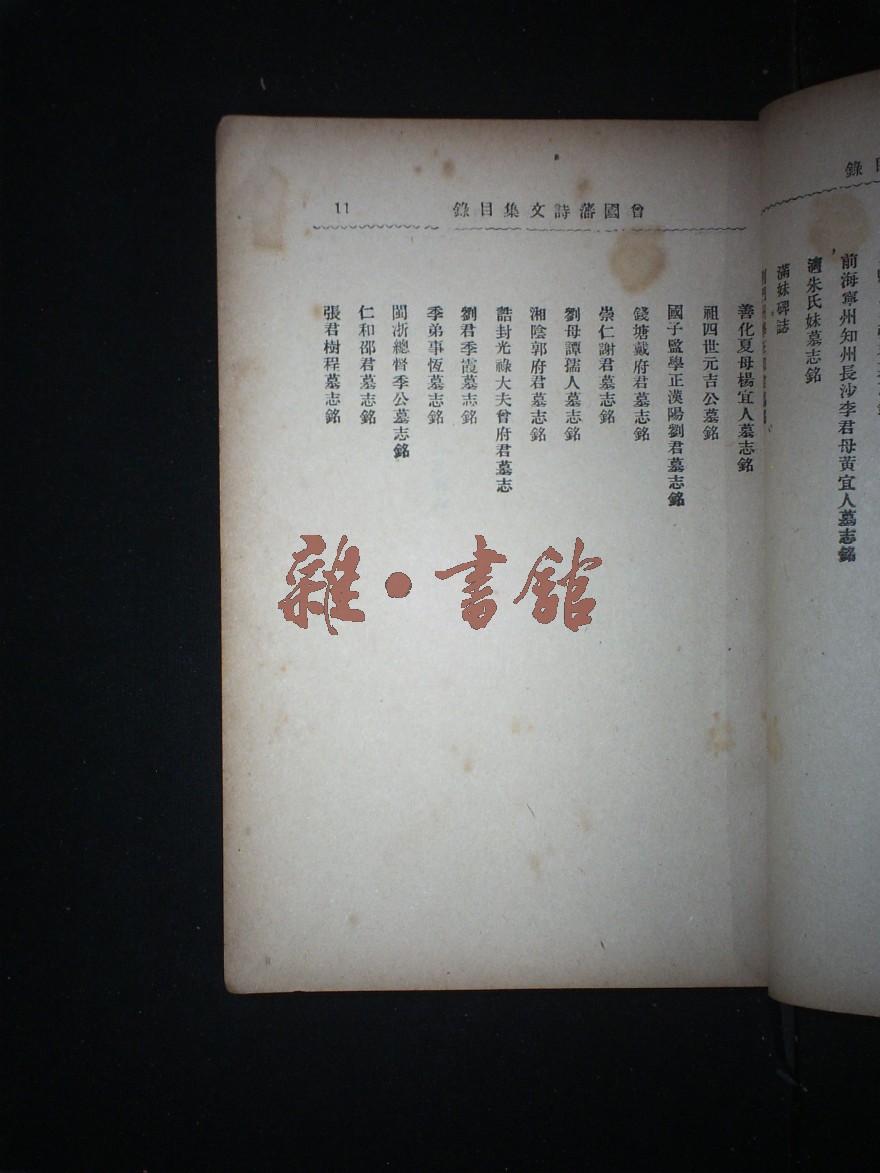 錄
前海寧州知州長沙李君母黃宜人墓志銘
適朱氏妹墓志銘
滿妹碑誌
曾國藩詩文集目錄
11
善化夏母楊宜人墓志銘
祖四世元吉公墓銘
國子監學正漢陽劉君墓志銘
錢塘戴府君墓志銘
崇仁謝君墓志銘
劉母譚孺人墓志銘
湘陰郭府君墓志銘
誥封光祿大夫曾府君墓志
劉君季霞墓志銘
季弟事恆墓志銘
閩浙總督季公墓志銘
仁和邵君墓志銘
張君樹程墓志銘
雜·書館